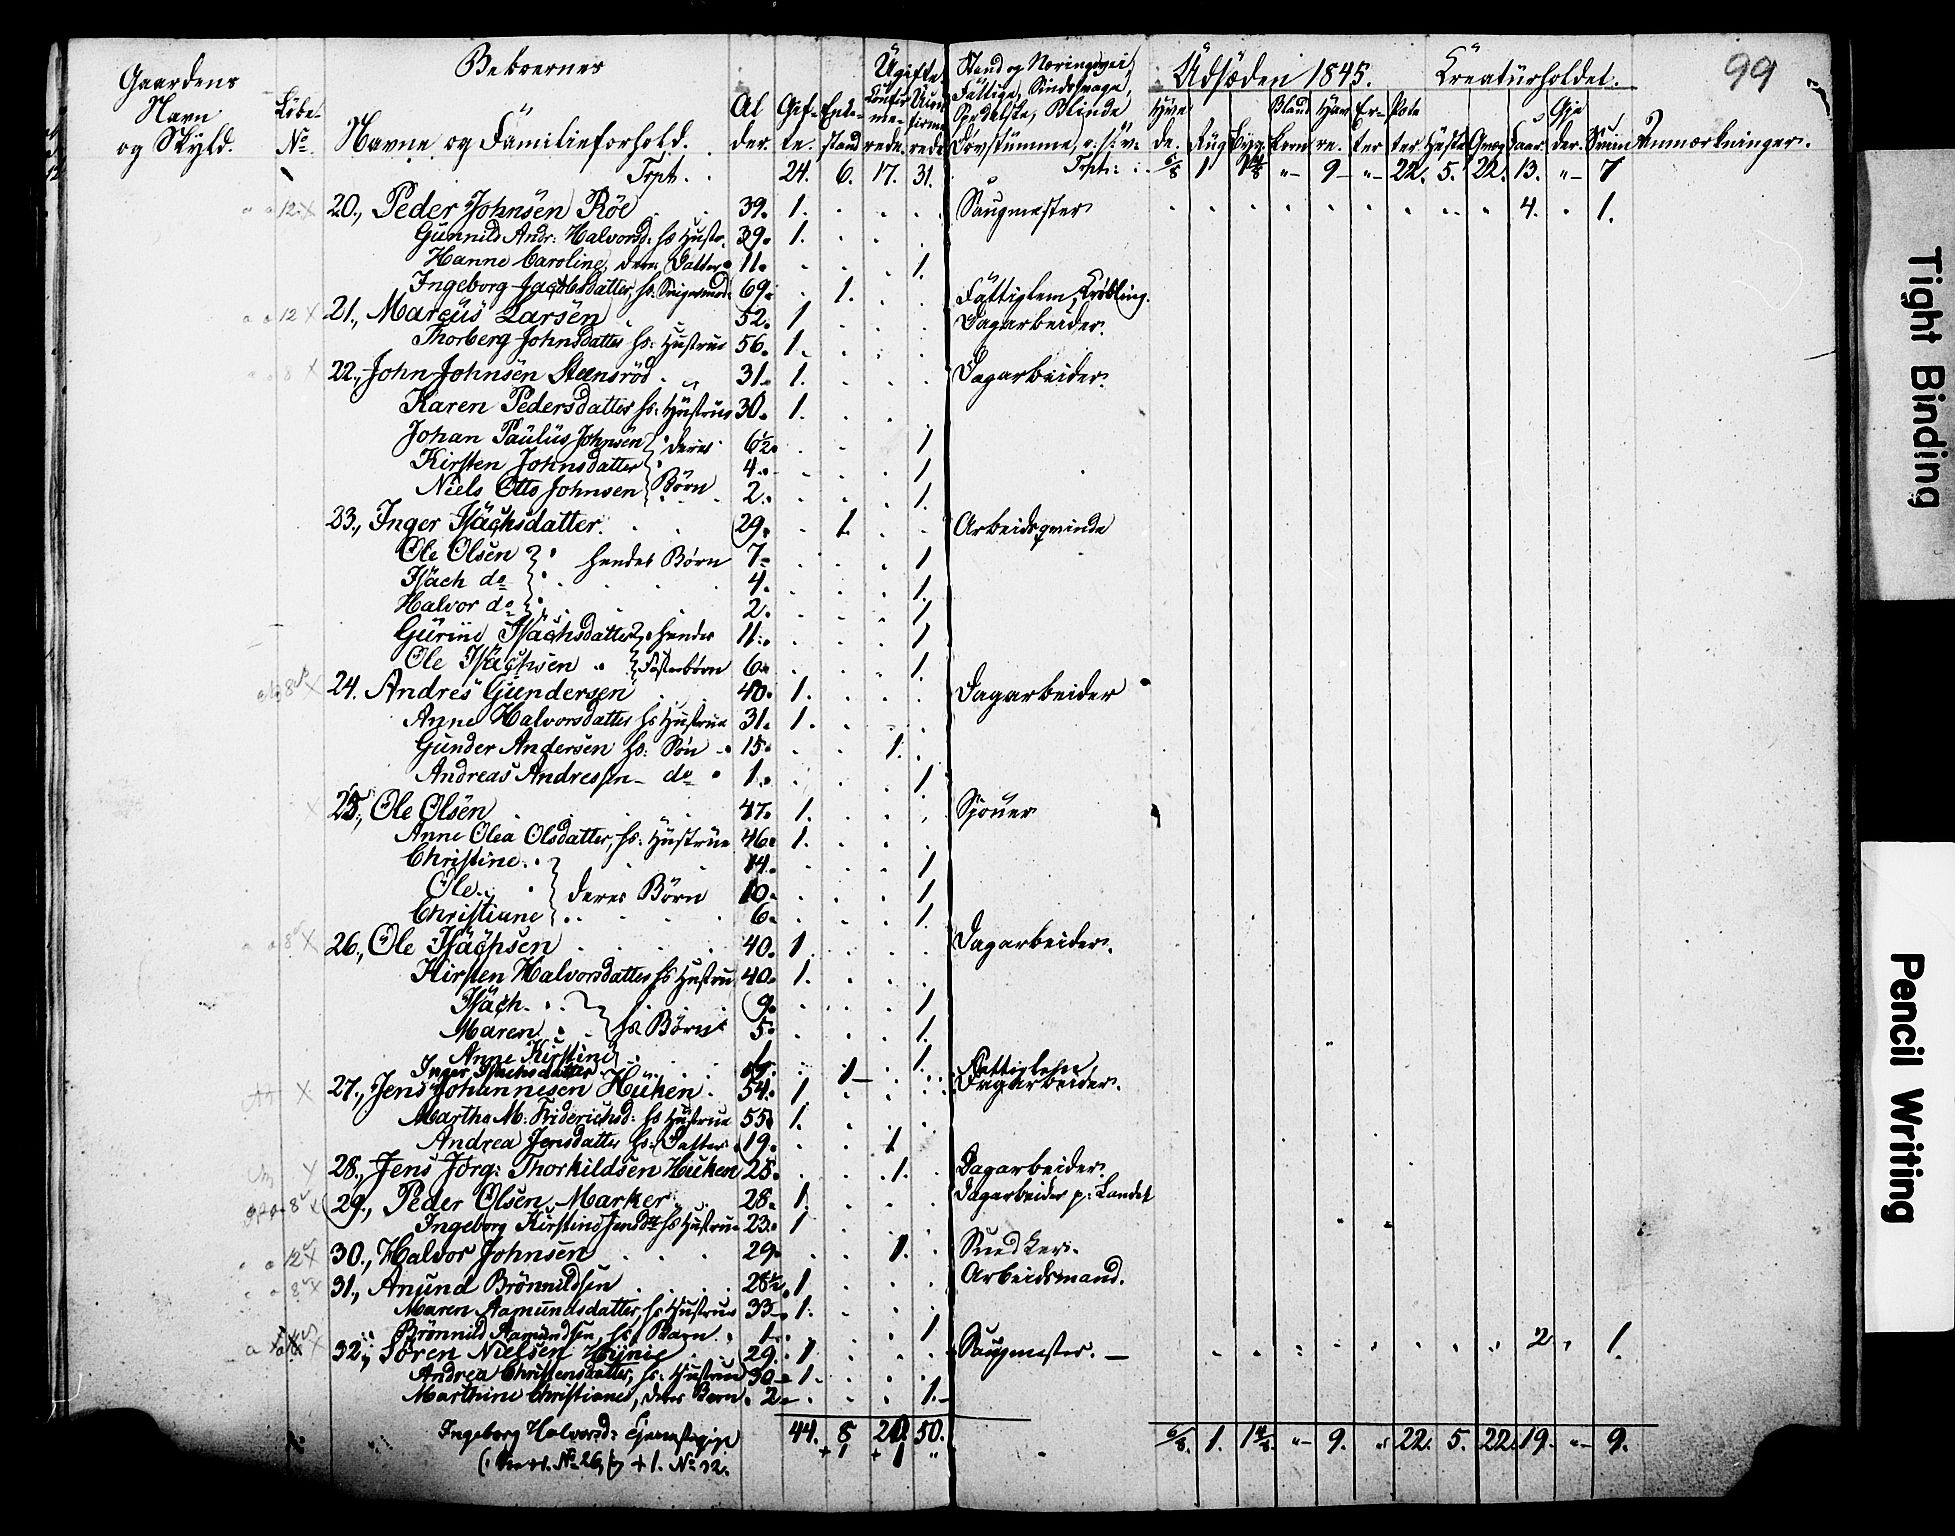 99
Gaardens Navn og Skyld.
Løbe-No.
Beboernes
Navne og Familieforhold.
Alder.
Gifte.
Enkestand
Ugifte
Confirmerede.
Uconfirmerede
Stand og Næringsvei, Fattige, Sindssvage, Spedalske, Blinde Døvstumme, o.s.v.
Udsæden 1845.
Hvede. Rug Byg. Bland Korn Havre. Erter Poteter
Creaturholdet.
Heste Qvæg Faar. Gjeder. Sviin
Anmærkninger.
Trpt. . 24. 6. 17. 31. Trpt: 6/8 1 1 4/8 "- 9- "- 22. 5. 22. 13. "- 7
20., Peder Johnsen Röe 39. 1. Saugmester 4. 1.
Gunnild Andr: Halvorsd. hs Hustr. 39. 1.
Hanne Caroline, deres Datter 11. 1.
Ingeborg Jacobsdatter, hs: Svigermod: 69. 1. Fattiglem, Krøbling.
21., Marcus Larsen 52. 1 Dagarbeider.
Thorberg Johnsdatter hs: Hustrue 56. 1.
22., John Johnsen Steensröd 31. 1. Dagarbeider.
Karen Pedersdatter hs: Hustrue 30. 1.
Johan Paulus Johnsen } deres 6½ 1
Kirsten Johnsdatter 4. 1
Niels Otto Johnsen } Børn 2. 1.
23., Inger Isachsdatter. 29. 1. Arbeidsqvinde
Ole Olsen } hendes Børn 7. 1
Isach do 4. 1.
Halvor do 2. 1
Gurine Isachsdatter } hendes 11. 1
Ole Isachsen } Fosterbörn 6. 1.
24. Andres Gundersen 40. 1. Dagarbeider
Anne Halvorsdatter hs Hustrue 31. 1.
Gunder Andersen hs: Søn 15. 1.
Andreas Andresen - do 1. 1
25., Ole Olsen 47. 1. Sjouer
Anne Olea Olsdatter, hs: Hustrue 46. 1.
Christine. 14. 1
Ole. } deres Børn 10. 1
Christiane 6. 1.
26., Ole Isachsen 40. 1. Dagarbeider.
Kirsten Halvorsdatter hs Hustru 40. 1.
Isach. 9. 1
Maren } hs. Børn 5. 1.
Anne Kirstine 1 1.
Inger Isachsdatter 1 - Fattiglem,
27., Jens Johannesen Huken. 54. 1 Dagarbeider.
Marthe M. Friderichsd: hs Hustrue 55 1.
Andrea Jensdatter hs: Datter. 19. 1
28., Jens Jörg: Thorkildsen Huken 25. 1. Dagarbeider.
29., Peder Olsen Marker 28. 1. Dagarbeider p: Landet
Ingeborg Kirstine Jensd. hs Hustrue 23. 1
30., Halvor Johnsen 29. 1. Snedker.
31., Anund Brönnildsen 28½ 1 Arbeidsmand.
Maren Aamundsdatter, hs Hustrue 33 1.
Brönnild Aamundsen, hs. Barn. 1. 1
32., Sören Nielsen 29. 1 Saugmester. 2 1.
Andrea Christensdatter, hs: Hustrue 30 1.
Marthine Christiane, deres Barn. 2 1.
44. 8 50. 6/8. 1. 1 4/8. "- 9. " 22. 5. 22. 19. "- 9.
Ingeborg Halvorsd:
+ 1 + 1 "
No 26, + 1. No 32.
Tight Binding
Pencil Writing